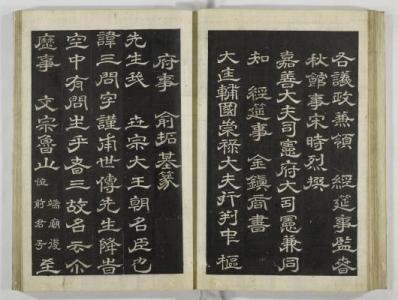 議政兼領 經筵事監春
秋館事宋時烈撰
嘉善大夫司憲府大司憲兼同
知 經筵事 金鎭商書
大匡輔國崇祿大夫行判中樞
府事 兪拓基篆
先生我 世宗大王朝名臣也
諱三問字謹甫世傳先生降旹
空中有問生乎者三故名云亦
歷事 文宗魯山 端廟復位前 至